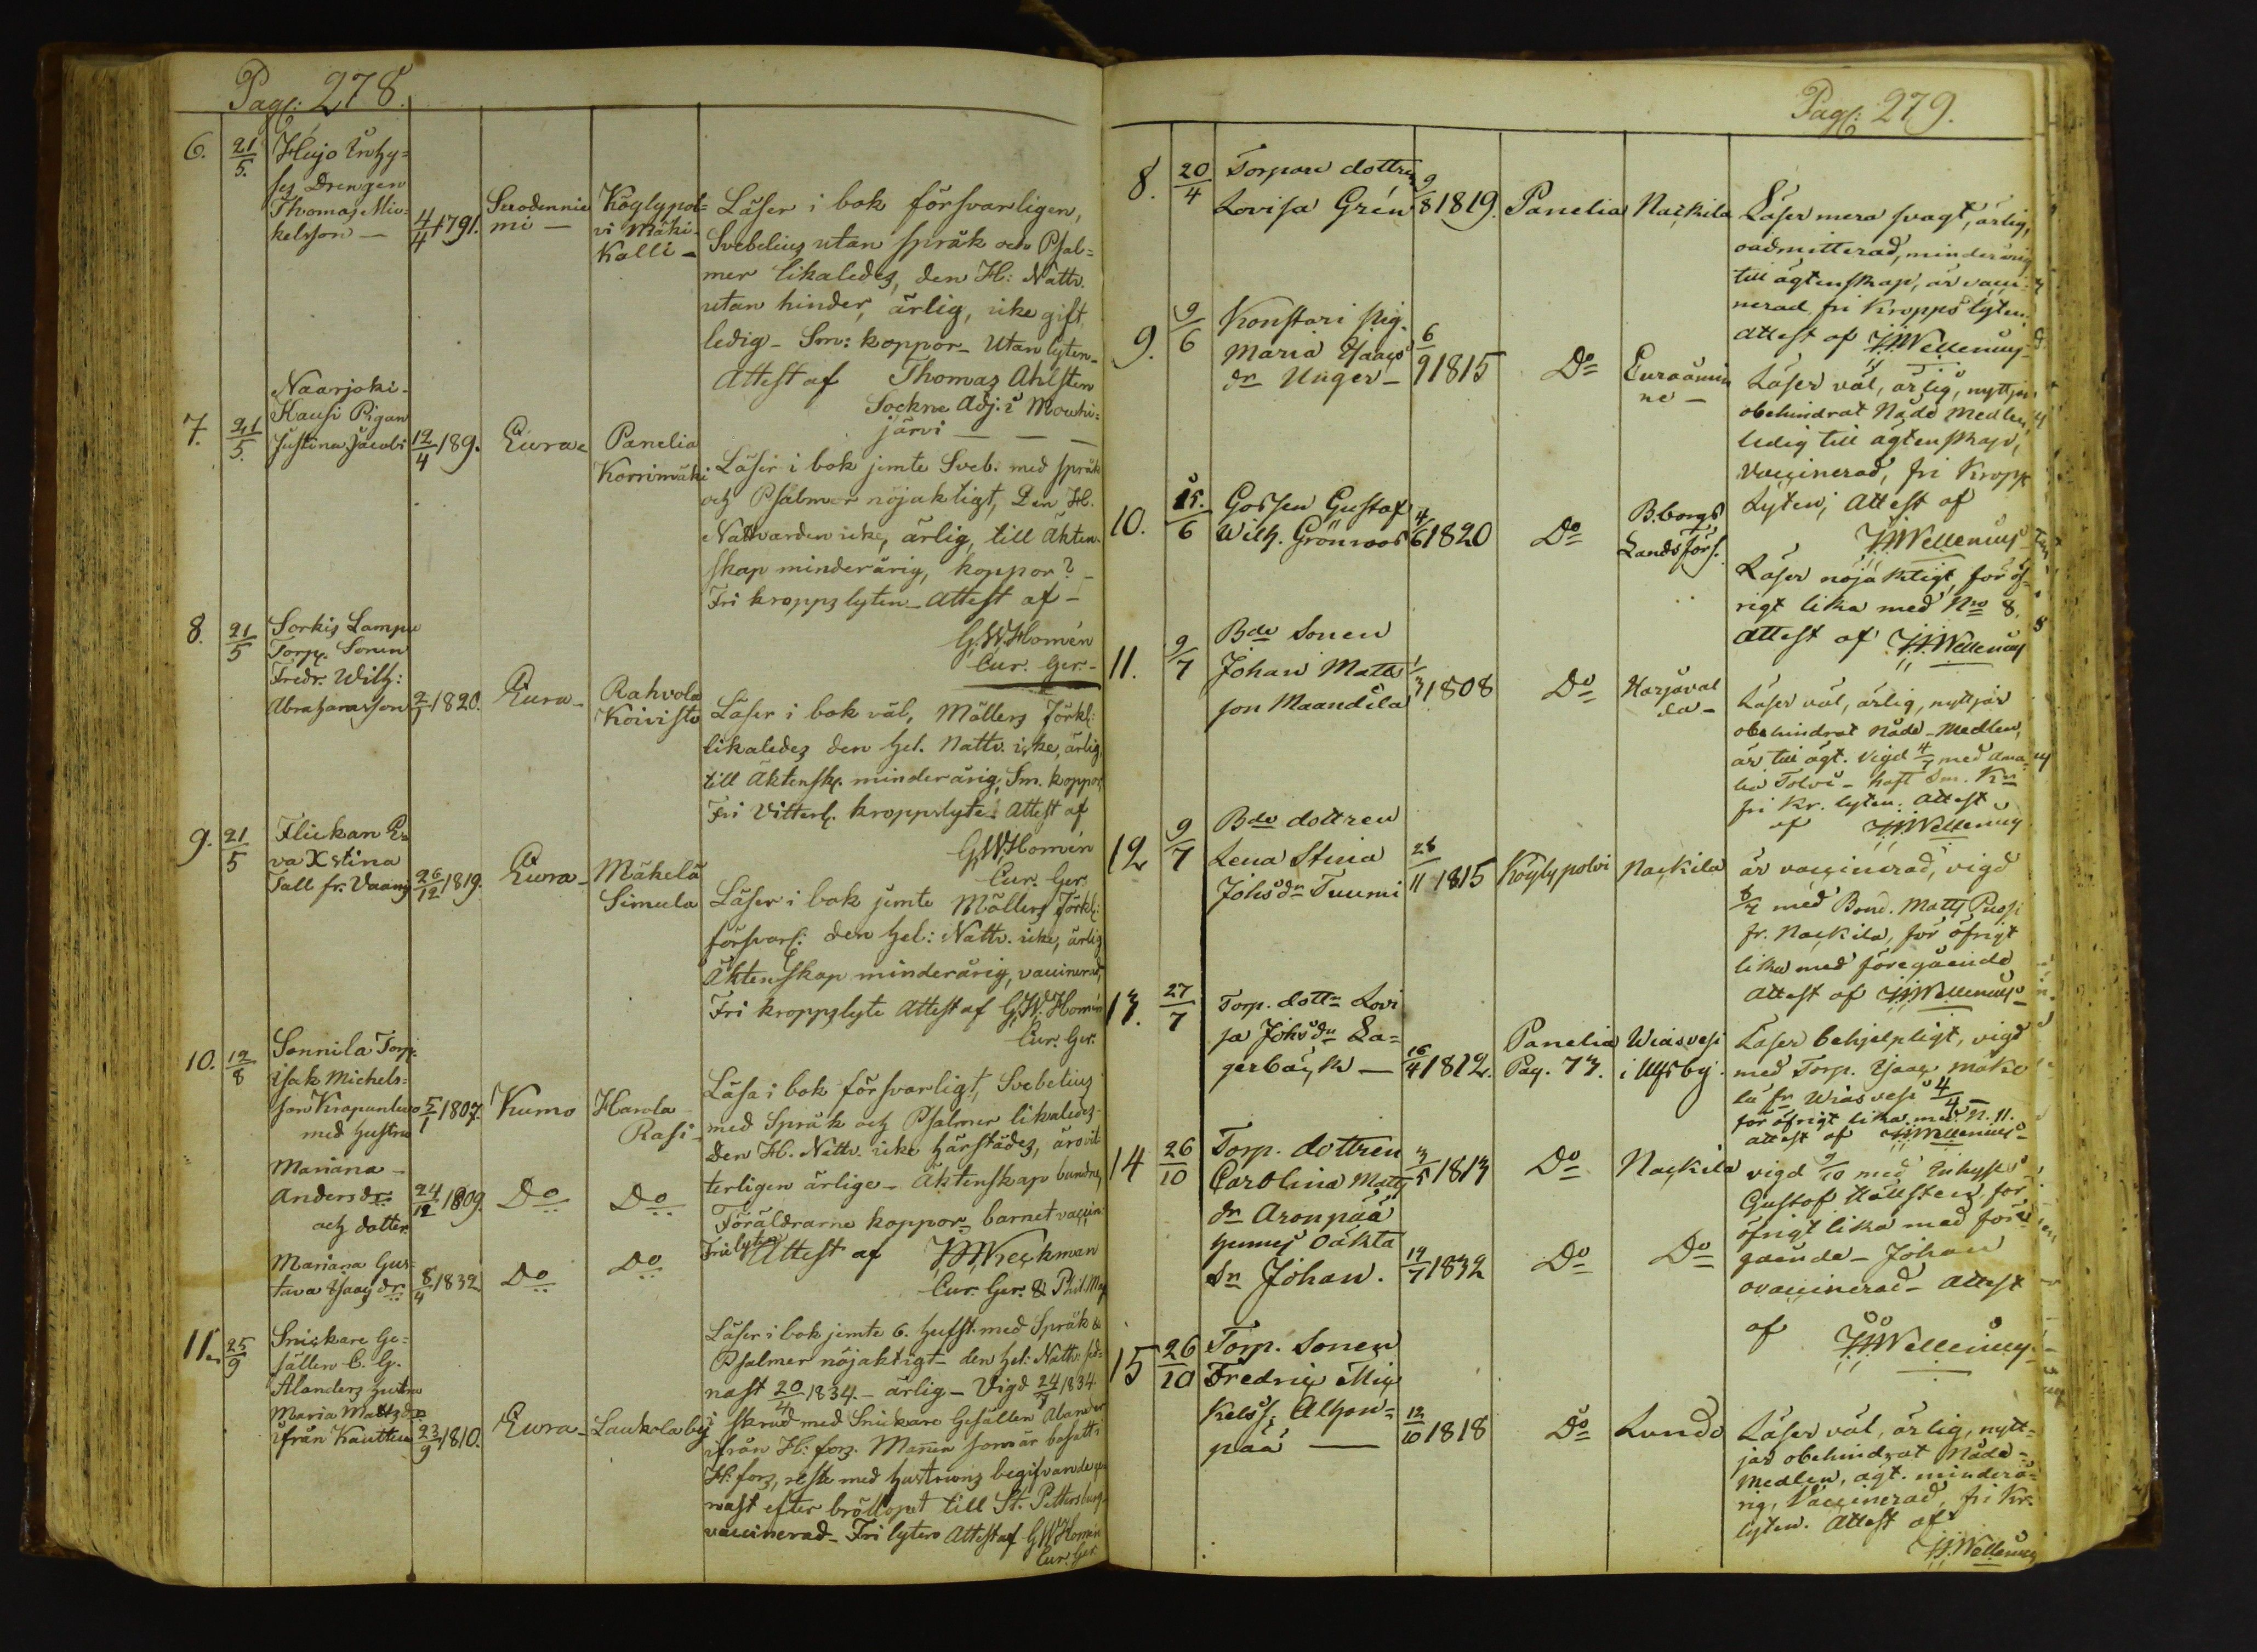 Pag: 278.
6. 21/5. Hujo Inhy=
ses Drengen
Thomas Mic=
kelsson — 4/4 1791. Suodennie
mi — Köylypol=
vi Mäki-
Kalli —
Läser i bok försvarligen,
Svebelius utan språk och Psal=
mer likaledes, den H: Nattv.
utan hinder, ärlig, icke gift,
ledig - Sm: koppor - Utan lyten -
Attest af Thomas Ahlsten
Sockne Adj. i Mouhi=
järvi — — —
7. 21/5. Naarjoki-
Kausi Pigan
Justina Jacobs 12/4 189. Eura - Panelia
Korrimäki
Läser i bok jemte Sveb. med språk
och Psalmer nöjaktigt, Den H.
Nattvarden icke, ärlig, till Äkten-
skap minderårig, koppor? -
Fri kropps lyten - Attest af -
G.W. Homén
Cur. Ger. -
8. 21/5 Sorkis Lampu
Torp. Sonen
Fredr. Wilh:
Abrahamsson 2/1 1820. Eura - Rahvola
Koivisto
Läser i bok väl, Möllers Förkl:
likaledes den hel. Nattv. icke, ärlig,
till Äktensk. minderårig, Sm. koppor,
Fri Vitterl. kroppslyte. Attest af
G.W. Homén
Cur. Ger.
9. 21/5 Flickan E=
va Xstina
Tall fr. Vaany 26/12 1819. Eura - Mäkelä
Simula
Läser i bok jemte Möllers Förkl:
försvarl: den hel: Nattv. icke, ärlig
Äktenskap minderårig, vaccinerad,
Fri kroppslyte Attest af G.W. Homén
Cur. Ger.
10. 12/8 Sonnila Torp.
Isak Michels=
son Krapunlevo 5/1 1807. Kumo Harola
Rasi -
med hustru
Mariana -
Anders dr 24/12 1809. Do Do
och dotter
Mariana Gus=
tava Isaks dr 8/4 1832 Do Do
Läsa i bok försvarligt, Svebelius
med Språk och Psalmer likaledes -
Den H. Nattv. icke härstädes, äro vit
terligen ärlige - Äktenskap bundne,
Föräldrarne koppor - barnet vaccin.
Frie lyten Attest af Keckman
Cur. Ger. & Phil. Mag
11. 25/9 Snickare Ge=
sällen C. G.
Alanders hustru
Maria Matts dr
ifrån Kauttua 23/9 1810. Eura - Laukola by
Läser i bok jemte 6. hufst. med Språk &
Psalmer nöjaktigt - den hel: Nattv: sed=
nast 20/4 1834. - ärlig - Vigd 24/7 1834
i skrud med Snickare Gesällen Alander
ifrån H: fors. Mannen som är bosatt i
H: fors, reste med hustruns begifvande ge
nast efter bröllopet till St. Petersburg.
vaccinerad - Fri lyten Attest af G.W. Homén
Cur. Ger.
Pag: 279.
8. 20/4 Torpare dottren
Lovisa Grén 9/8 1819. Panelia Nackila
Läser mera svagt, ärlig,
oadmitterad, minderårig
till ägtenskap, är vacci-
nerad, fri Kropps lyten.
Attest af Wellenius
9. 9/6 Konstari pig.
Maria Isaacs
dr Unger - 6/9 1815 Do Euraåmin
ne —
Läser väl, ärlig, nyttjar
obehindrat Nåde Medlen,
ledig till ägtenskap,
Vaccinerad, fri Kropp
Lyten; Attest af
Wellenius
10. 15./6 Gossen Gustaf
Wilh. Grönroos 4/6 1820 Do B.borgs
Landsförs.
Läser nöjaktigt, för öf=
rigt lika med No 8.
Attest af Wellenius
11. 9/7 Bde Sonen
Johan Matts
son Maandila 1/3 1808 Do Harjaval
da -
Läser väl, ärlig, nyttjar
obehindrat nåde-Medlen,
är till ägt. Vigd 4/7 med Ama
lia Tolvi - haft Sm. Kr
fri Kr. lyten. Attest
af Wellenius
12 9/7 Bde dottren
Lena Stina
Johs dr Tuumi 28/11 1815 Köylypolvi Nackila
är vaccinerad, vigd
med Bond. Matts Puosi
fr. Nackila, för öfrigt
lika med föregående
Attest af Wellenius
13. 27/7 Torp. dottr Lovi
sa Johs dr La=
gerbäck — 16/4 1812. Panelia
Pag. 73. Wiasvesi
i Ulfsby.
Läser behjelpligt, vigd
med Torp. Isaac Mäke
lä fr. Wiasvesi 4/4 —
för öfrigt lika med N. 11.
attest af Wellenius
14 26/10 Torp. dottren
Carolina Matts
dr Aronpää
hennes oäkta
Sn Johan. 3/5 1813 Do Nackila
14/7 1832 Do Do
vigd 9/10 med Inhyses
Gustaf Hällsten, för
öfrigt lika med före
gående - Johan
ovaccinerad - Attest
af Wellenius
15 26/10 Torp. Sonen
Fredric Mic
kelss. Alhon=
pää — 12/10 1818 Do Lundo
Läser väl, ärlig, nytt=
jar obehindrat Nåde=
Medlen, ägt. minderå=
rig, Vaccinerad, fri Kr.
lyten. Attest af
Wellenius